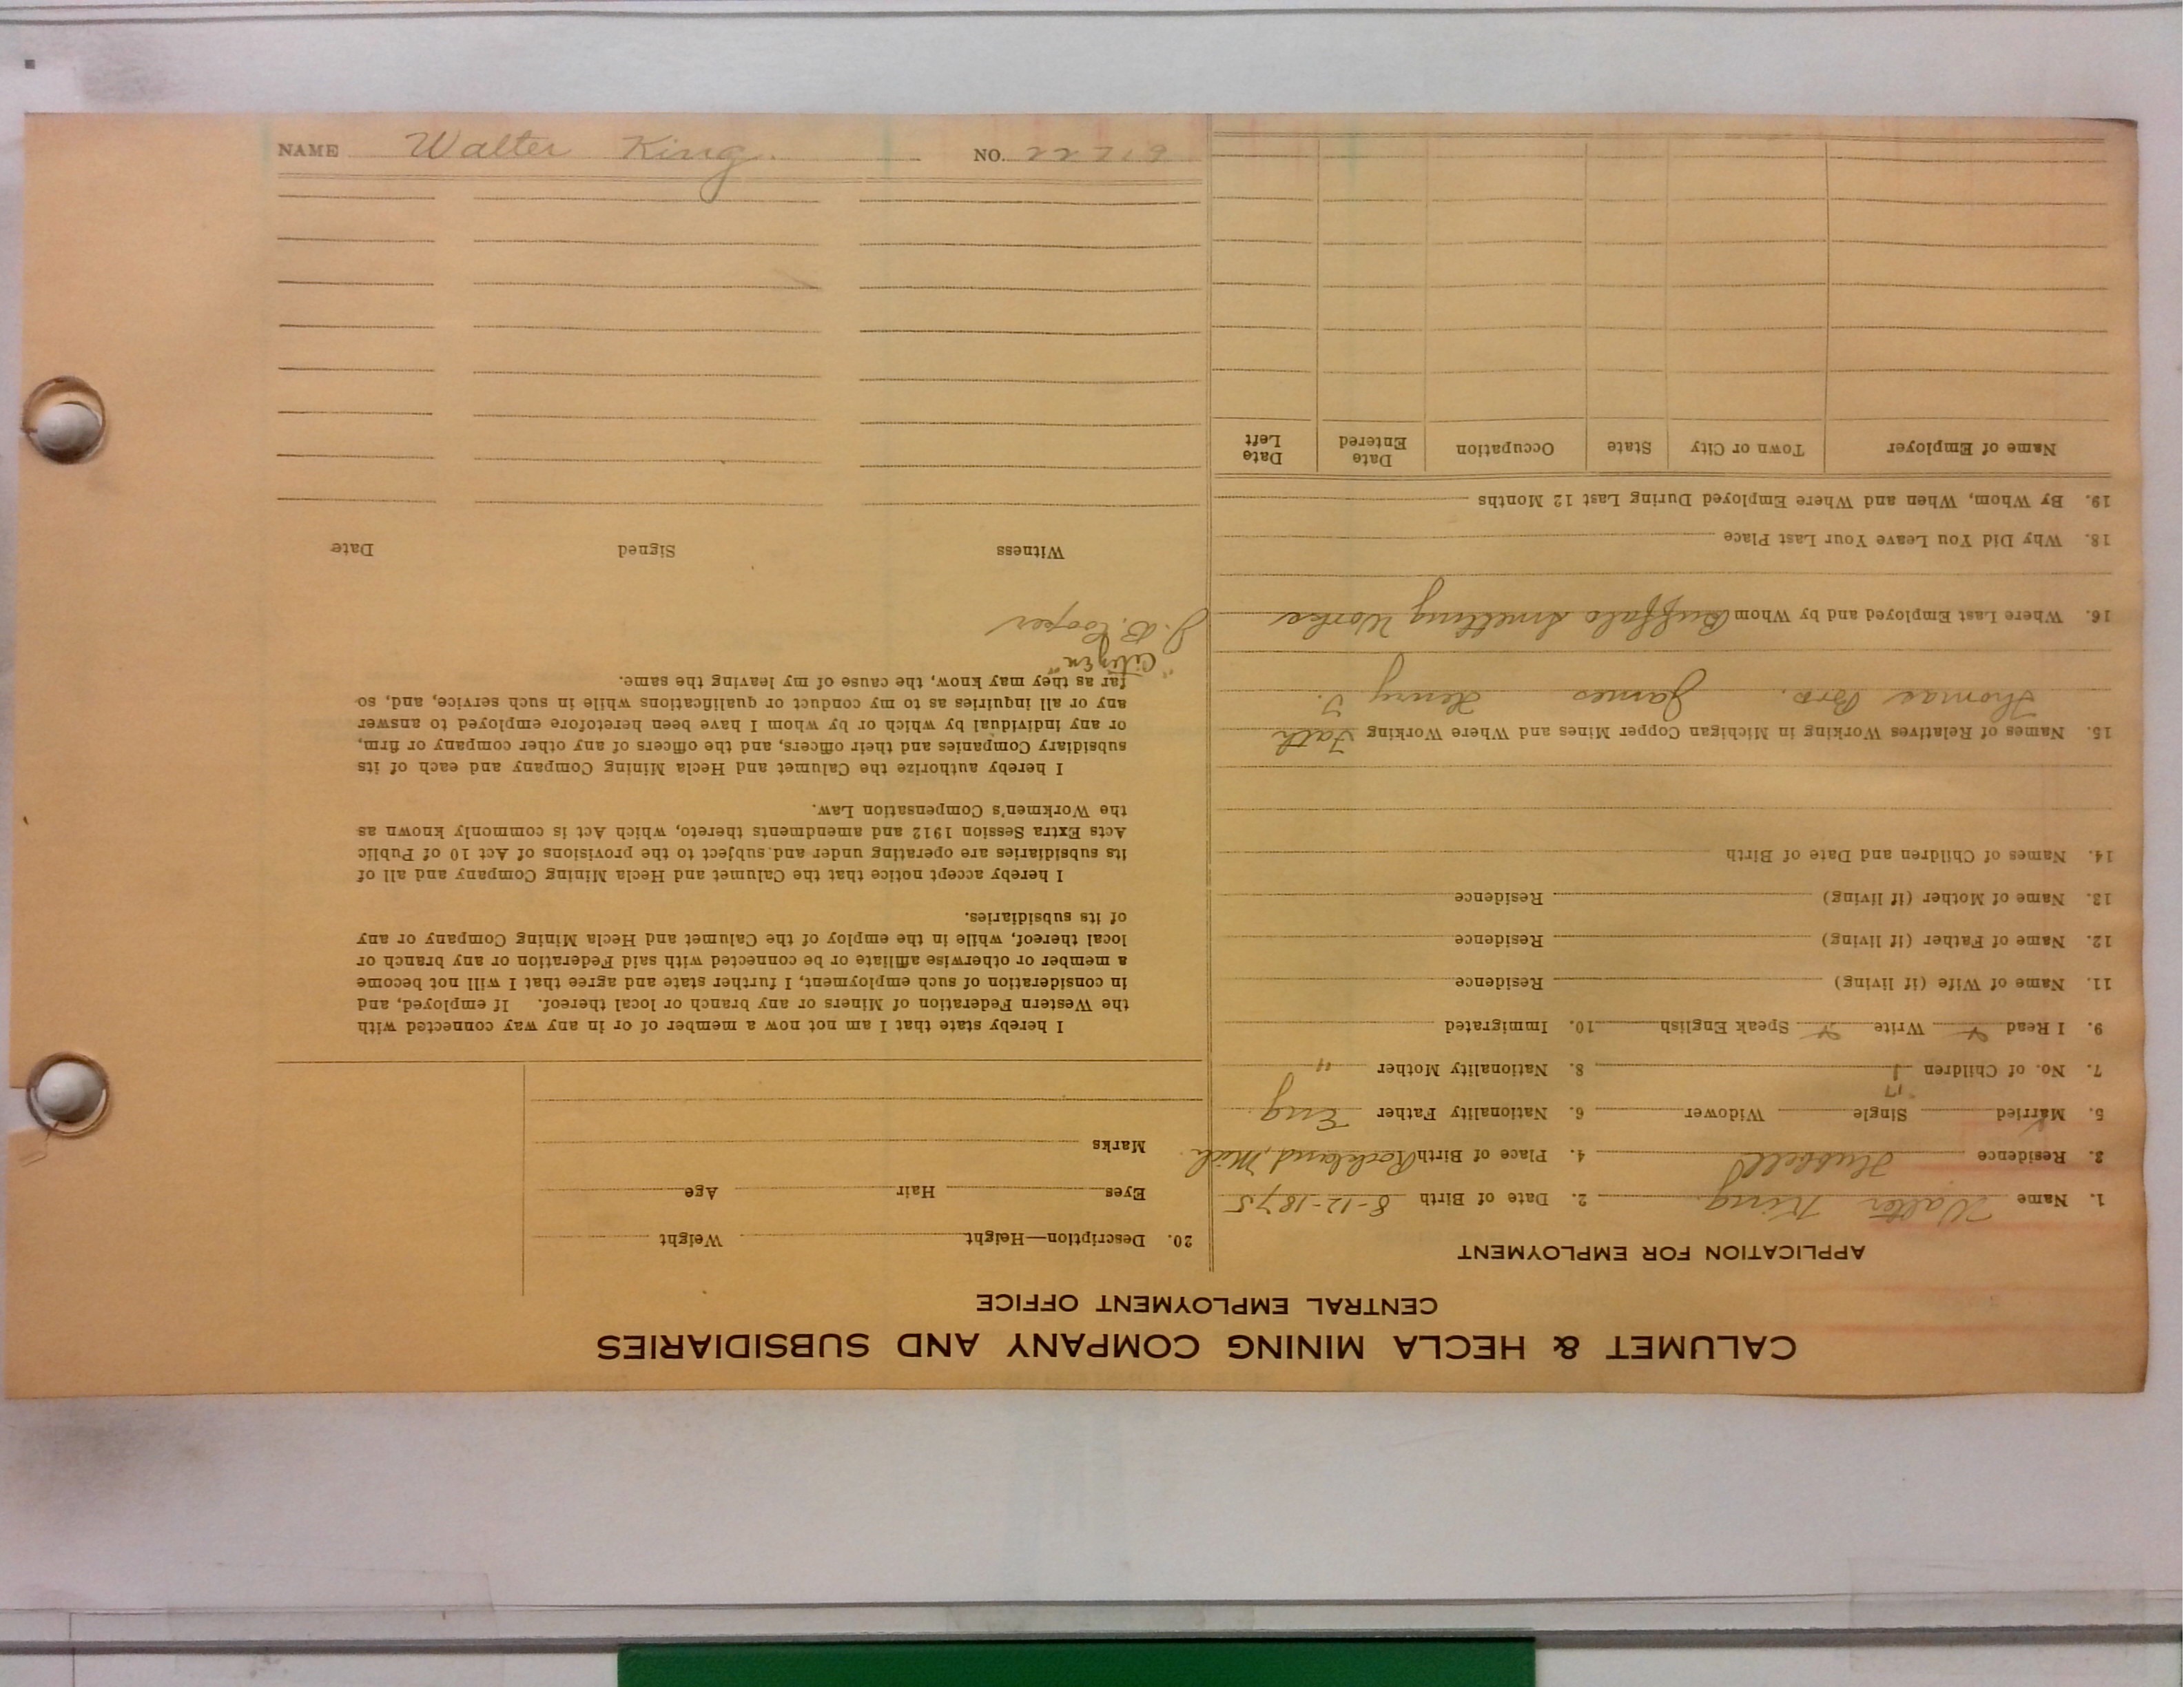 CALUMET & HECLA MINING COMPANY AND SUBSIDIARIES
CENTRAL EMPLOYMENT OFFICE
APPLICATION FOR EMPLOYMENT
1. Name Walter King 2. Date of Birth 8-12-1875
3. Residence Hubbell 4. Place of Birth Rockland, Mich.
5. Married Single Widower 6. Nationality Father Eng.
7. No. of Children 1 8. Nationality Mother "
9. I Read Write Speak English 10. Immigrated
11. Name of Wife (if living) Residence
12. Name of Father (if living) Residence
13. Name of Mother (if living) Residence
14. Names of Children and Date of Birth
15. Names of Relatives Working in Michigan Copper Mines and Where Working Fath
Thomas Bro. James Henry
16. Where Last Employed and by Whom Buffalo Smelting Works
18. Why Did You Leave Your Last Place
19. By Whom, When and Where Employed During Last 12 Months
Name of Employer Town or City State Occupation Date Entered Date Left
20. Description—Height Weight
Eyes Hair Age
Marks
I hereby state that I am not now a member of or in any way connected with
the Western Federation of Miners or any branch or local thereof. If employed, and
in consideration of such employment, I further state and agree that I will not become
a member or otherwise affiliate or be connected with said Federation or any branch or
local thereof, while in the employ of the Calumet and Hecla Mining Company or any
of its subsidiaries.
I hereby accept notice that the Calumet and Hecla Mining Company and all of
its subsidiaries are operating under and subject to the provisions of Act 10 of Public
Acts Extra Session 1912 and amendments thereto, which Act is commonly known as
the Workmen's Compensation Law.
I hereby authorize the Calumet and Hecla Mining Company and each of its
subsidiary Companies and their officers, and the officers of any other company or firm,
or any individual by which or by whom I have been heretofore employed to answer
any or all inquiries as to my conduct or qualifications while in such service, and, so
far as they may know, the cause of my leaving the same.
"Citizen"
J. B. Cooper
Witness Signed Date
NAME Walter King. NO. 22719